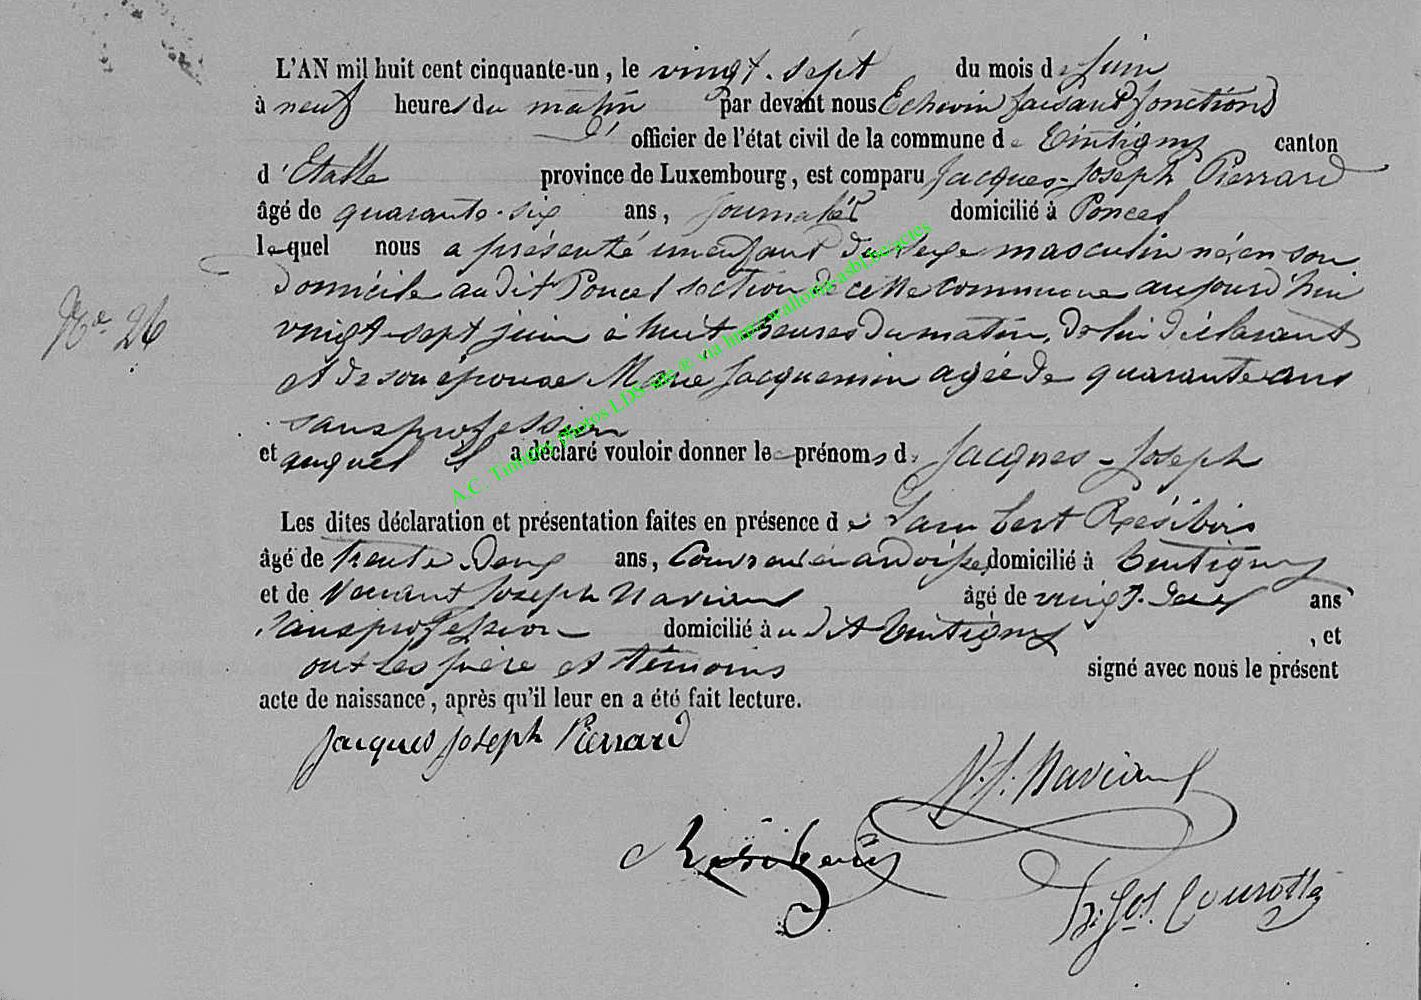 L'AN mil huit cent cinquante-un, le vingt-sept du mois de juin
à neuf heures du matin par devant nous Echevin faisant fonctions
d' officier de l'état civil de la commune de Tintigny canton
d'Etalle province de Luxembourg, est comparu Jacques-Joseph Pierrard
âgé de quarante-six ans, journalier domicilié à Poncel
lequel nous a présenté un enfant du sexe masculin né, en son
domicile au dit Poncel section de cette commune aujourd'hui
N° 26
vingt-sept juin à huit heures du matin, de lui déclarant
et de son épouse Marie Jacquemin agée de quarante ans
sans profession
et auquel il a déclaré vouloir donner les prénoms de Jacques-Joseph
A.C. Tintigny photos LDS site ® via http://wallonia-asbl.be/actes
Les dites déclaration et présentation faites en présence de Lambert Résibois
âgé de trente-deux ans, Couvreur en ardoises domicilié à Tintigny
et de Venant Joseph Naviaux âgé de vingt-deux ans
sans profession domicilié au dit Tintigny, et
ont les père et témoins signé avec nous le présent
acte de naissance, après qu'il leur en a été fait lecture.
Jacques Joseph Pierrard
V. J. Naviaux
Résibois